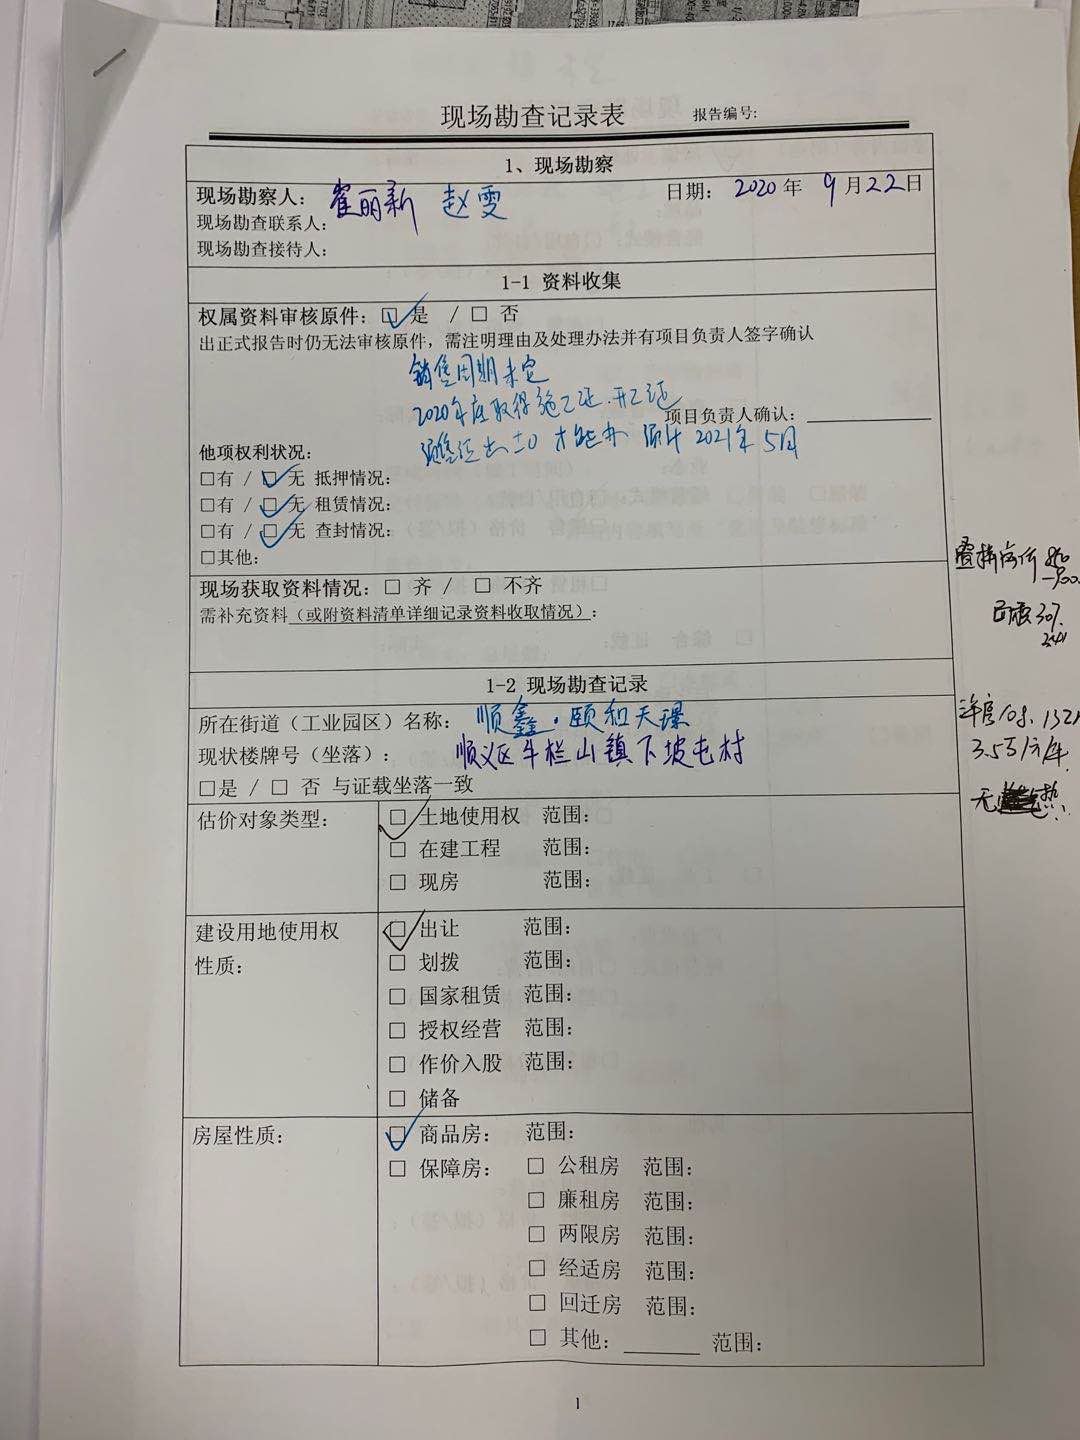 现场勘查记录表 报告编号:
1、现场勘察
现场勘察人: 崔丽新 赵雯 日期: 2020年 9月22日
现场勘查联系人:
现场勘查接待人:
1-1 资料收集
权属资料审核原件: ☑ 是 / □ 否
出正式报告时仍无法审核原件，需注明理由及处理办法并有项目负责人签字确认
销售周期未定
2020年底取得施工证.开工证
项目负责人确认:
预售证出±0 才能办 预计 2021年5月
他项权利状况:
□有 / ☑ 无 抵押情况:
□有 / ☑ 无 租赁情况:
□有 / ☑ 无 查封情况:
□其他:
现场获取资料情况: □ 齐 / □ 不齐
需补充资料（或附资料清单详细记录资料收取情况）:
1-2 现场勘查记录
所在街道（工业园区）名称: 顺鑫·颐和天璟
现状楼牌号（坐落）: 顺义区牛栏山镇下坡屯村
□是 / □ 否 与证载坐落一致
估价对象类型:
☑ 土地使用权 范围:
□ 在建工程 范围:
□ 现房 范围:
建设用地使用权
性质:
☑ 出让 范围:
□ 划拨 范围:
□ 国家租赁 范围:
□ 授权经营 范围:
□ 作价入股 范围:
□ 储备
房屋性质:
☑ 商品房: 范围:
□ 保障房: □ 公租房 范围:
□ 廉租房 范围:
□ 两限房 范围:
□ 经适房 范围:
□ 回迁房 范围:
□ 其他: 范围:
3.5万元/年
1